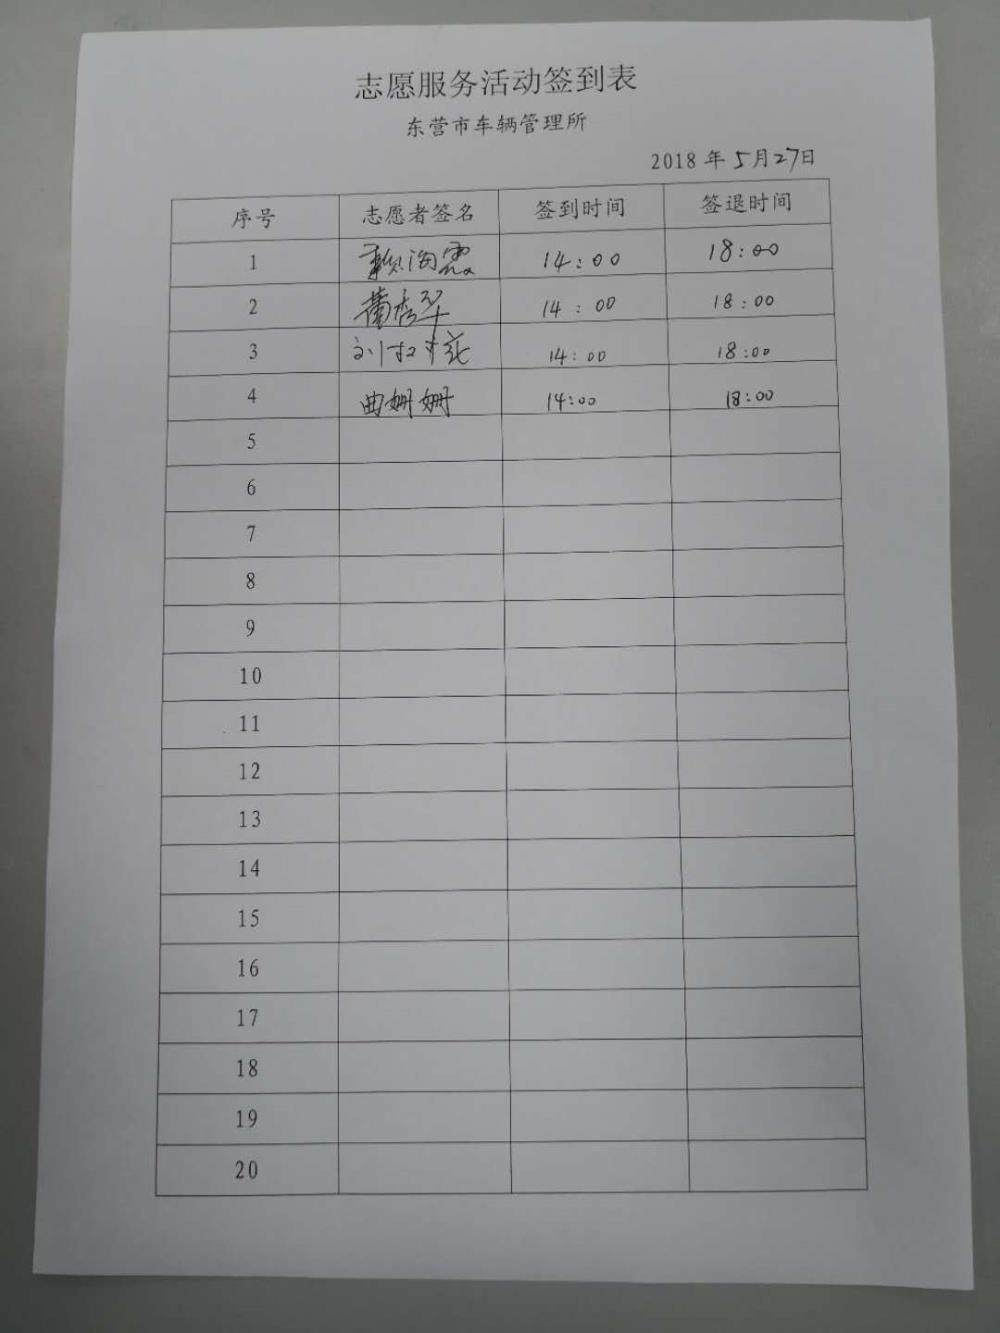 志愿服务活动签到表
东营市车辆管理所
2018年5月27日
序号 志愿者签名 签到时间 签退时间
1 14:00 18:00
2 14:00 18:00
3 14:00 18:00
4 曲姗姗 14:00 18:00
5
6
7
8
9
10
11
12
13
14
15
16
17
18
19
20